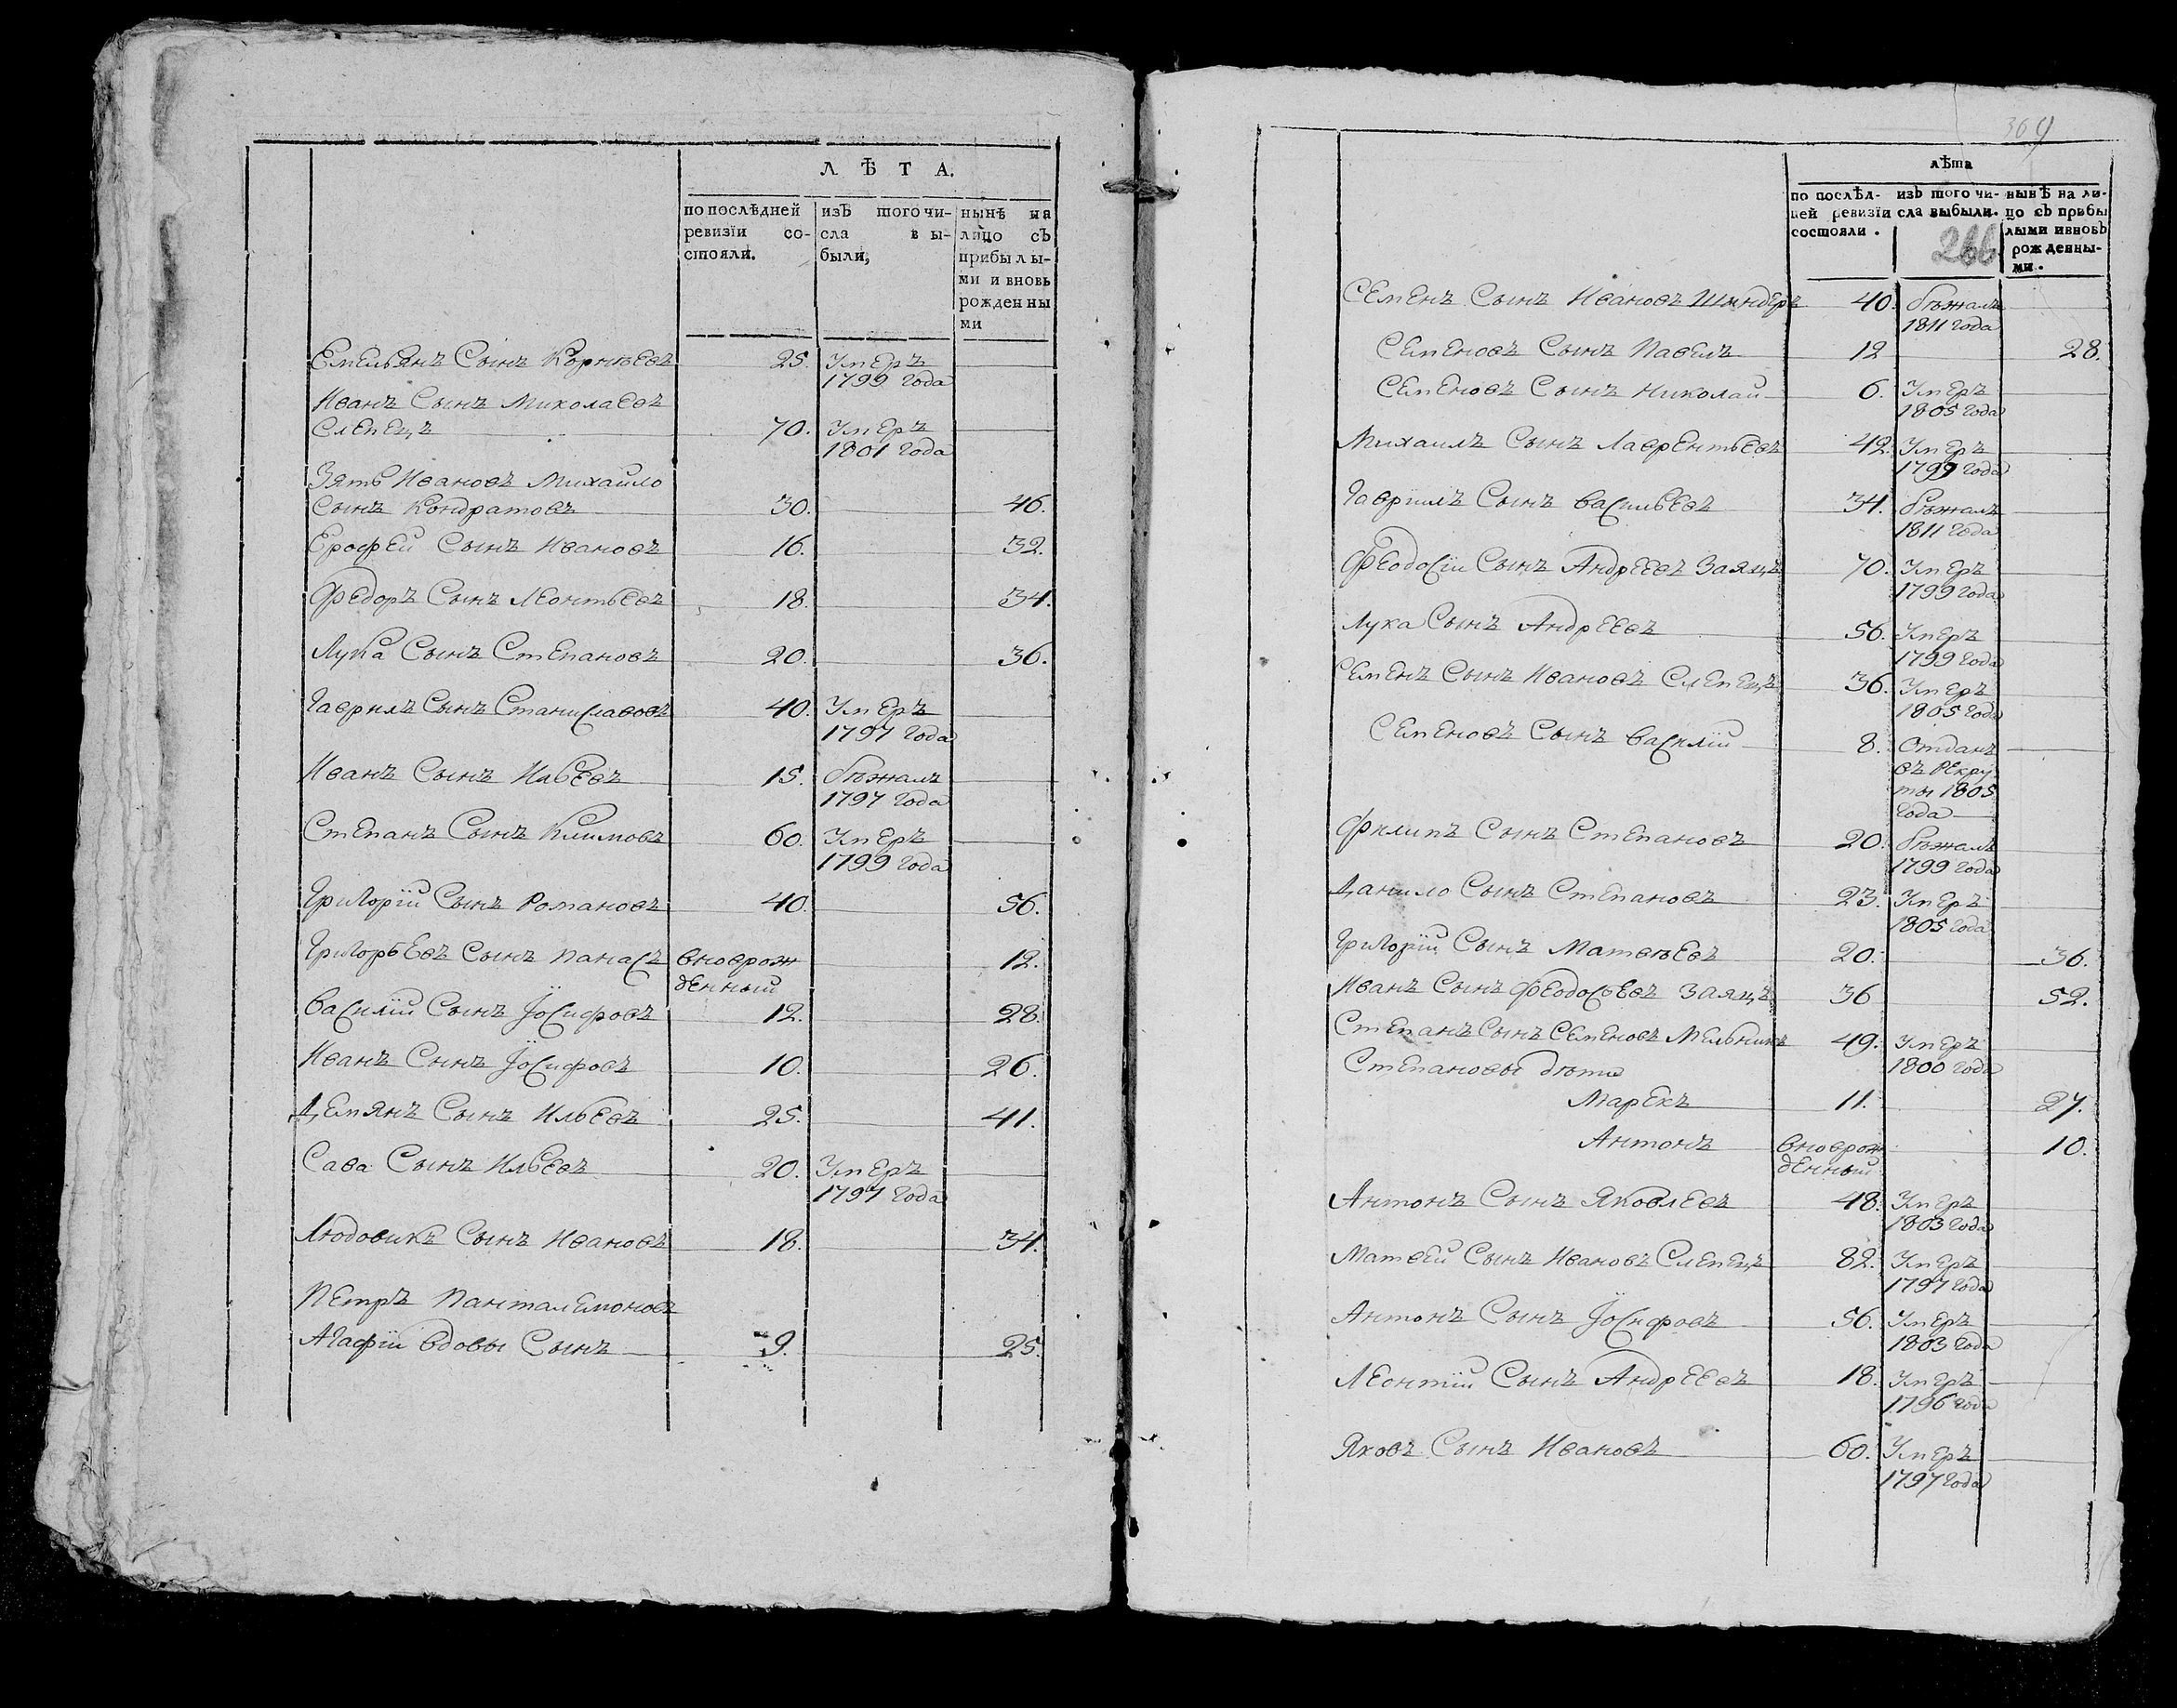 Л Ѣ Т А.
по послѣдней ревизїи со-стояли.
изъ того чи-сла вы-были,
нынѣ на лицо съ прибылы-ми и вновь рожденны ми
Емельянъ Сынъ Корнѣевъ 25. Умеръ
1799 года
Иванъ Сынъ Миколаевъ
Слепецъ 70. Умеръ
1801 года
Зять Ивановъ Михайло
Сынъ Кондратовъ 30. 46.
Ерофей Сынъ Ивановъ 16. 32.
Федоръ Сынъ Леонтьевъ 18. 34.
Лука Сынъ Степановъ 20. 36.
Гаврилъ Сынъ Станиславовъ 40. Умеръ
1797 года
Иванъ Сынъ Ильевъ 15. бѣжалъ
1797 года
Степанъ Сынъ Климовъ 60. Умеръ
1799 года
Григорїй Сынъ Романовъ 40. 56.
Григорьевъ Сынъ Панасъ вноврож 12.
денный
Василїй Сынъ Іосифовъ 12. 28.
Иванъ Сынъ Іосифовъ 10. 26.
Демянъ Сынъ Ильевъ 25. 41.
Сава Сынъ Ильевъ 20. Умеръ
1797 года
Людовикъ Сынъ Ивановъ 18. 34.
Петръ Панталемоновъ
Агафїи вдовы Сынъ 9. 25.
369
лѣта
по послѣд-ней ревизїи состояли.
изъ того чи-сла выбыли.
нынѣ на ли-цо съ прибы лыми и вновь рожденны-ми.
266
Семенъ Сынъ Ивановъ Шиндеръ 40. бѣжалъ
1811 года
Семеновъ Сынъ Павелъ 12 28.
Семеновъ Сынъ Николай 6. Умеръ
1805 года
Михаилъ Сынъ Лаврентьевъ 42. Умеръ
1799 года
Гаврїилъ Сынъ Васильевъ 34. бѣжалъ
1811 года
Феодосїй Сынъ Андреевъ Заяцъ 70. Умеръ
1799 года
Лука Сынъ Андреевъ 56. Умеръ
1799 года
Семенъ Сынъ Ивановъ Слепецъ 36. Умеръ
1805 года
Семеновъ Сынъ Василїй 8. Отданъ
въ рекру
ты 1805
года
Филипъ Сынъ Степановъ 20. бѣжалъ
1799 года
Данило Сынъ Степановъ 23. Умеръ
1805 года
Григорїй Сынъ Матвѣевъ 20. 36.
Иванъ Сынъ Феодосьевъ Заяцъ 36 52.
Степанъ Сынъ Семеновъ Мельникъ 49. Умеръ
1800 года
Степановы дѣти
Марекъ 11. 27.
Антонъ вноврож 10.
денный
Антонъ Сынъ Яковлевъ 48. Умеръ
1803 года
Матвей Сынъ Ивановъ Слепецъ 82. Умеръ
1797 года
Антонъ Сынъ Іосифовъ 56. Умеръ
1803 года
Леонтїй Сынъ Андреевъ 18. Умеръ
1796 года
Яковъ Сынъ Ивановъ 60. Умеръ
1797 года